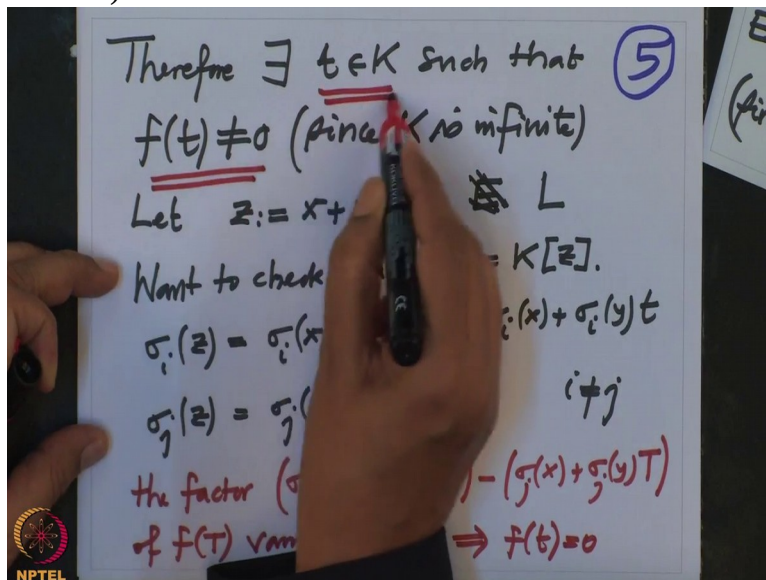 Therefore ∃ t ∈ K such that ⑤
f(t) ≠ 0 (since K is infinite)
Let z := x + L
Want to check = K[z].
σ_i(z) = σ_i(x σ_i(x) + σ_i(y) t
σ_j(z) = σ_j( i ≠ j
the factor ( ) − (σ_j(x) + σ_j(y) T)
of f(T) van ⟹ f(t) = 0
NPTEL